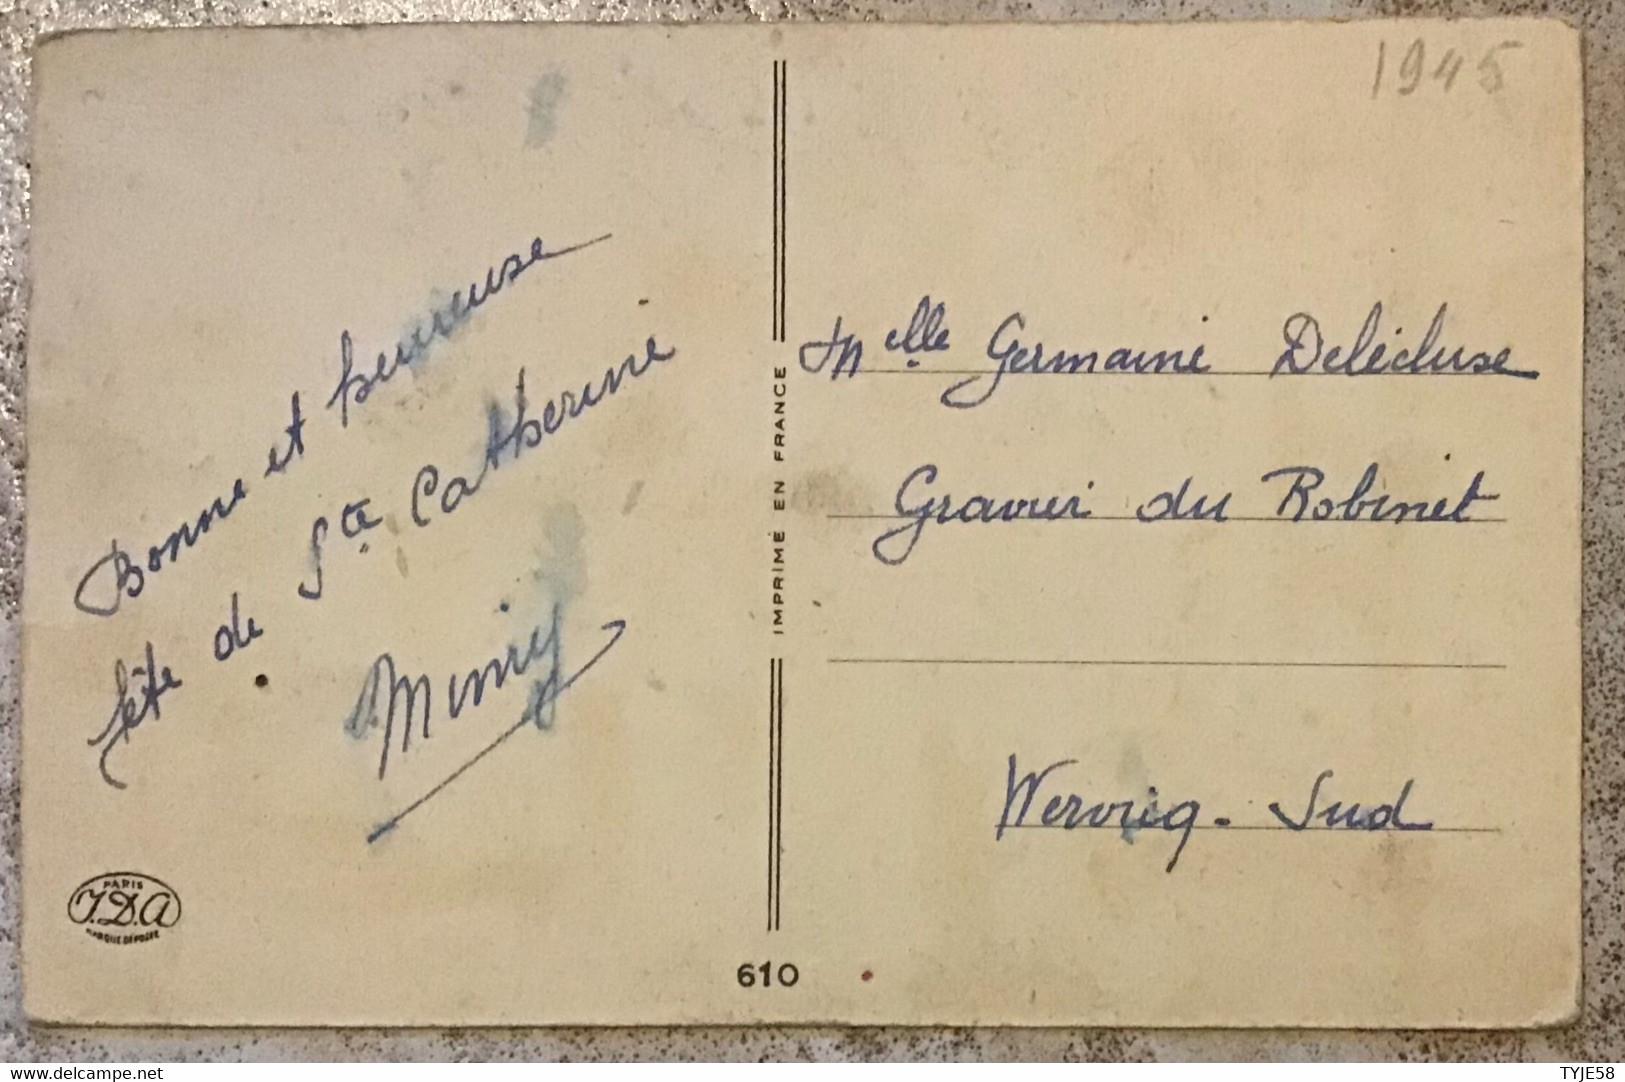 1945
Bonne et heureuse
fête de Ste Catherine
Mimy
Melle Germaine Delécluse
Gravier du Robinet
Wervicq-Sud
IMPRIMÉ EN FRANCE
PARIS
J.D.A
MARQUE DÉPOSÉE
610
www.delcampe.net
TYJE58